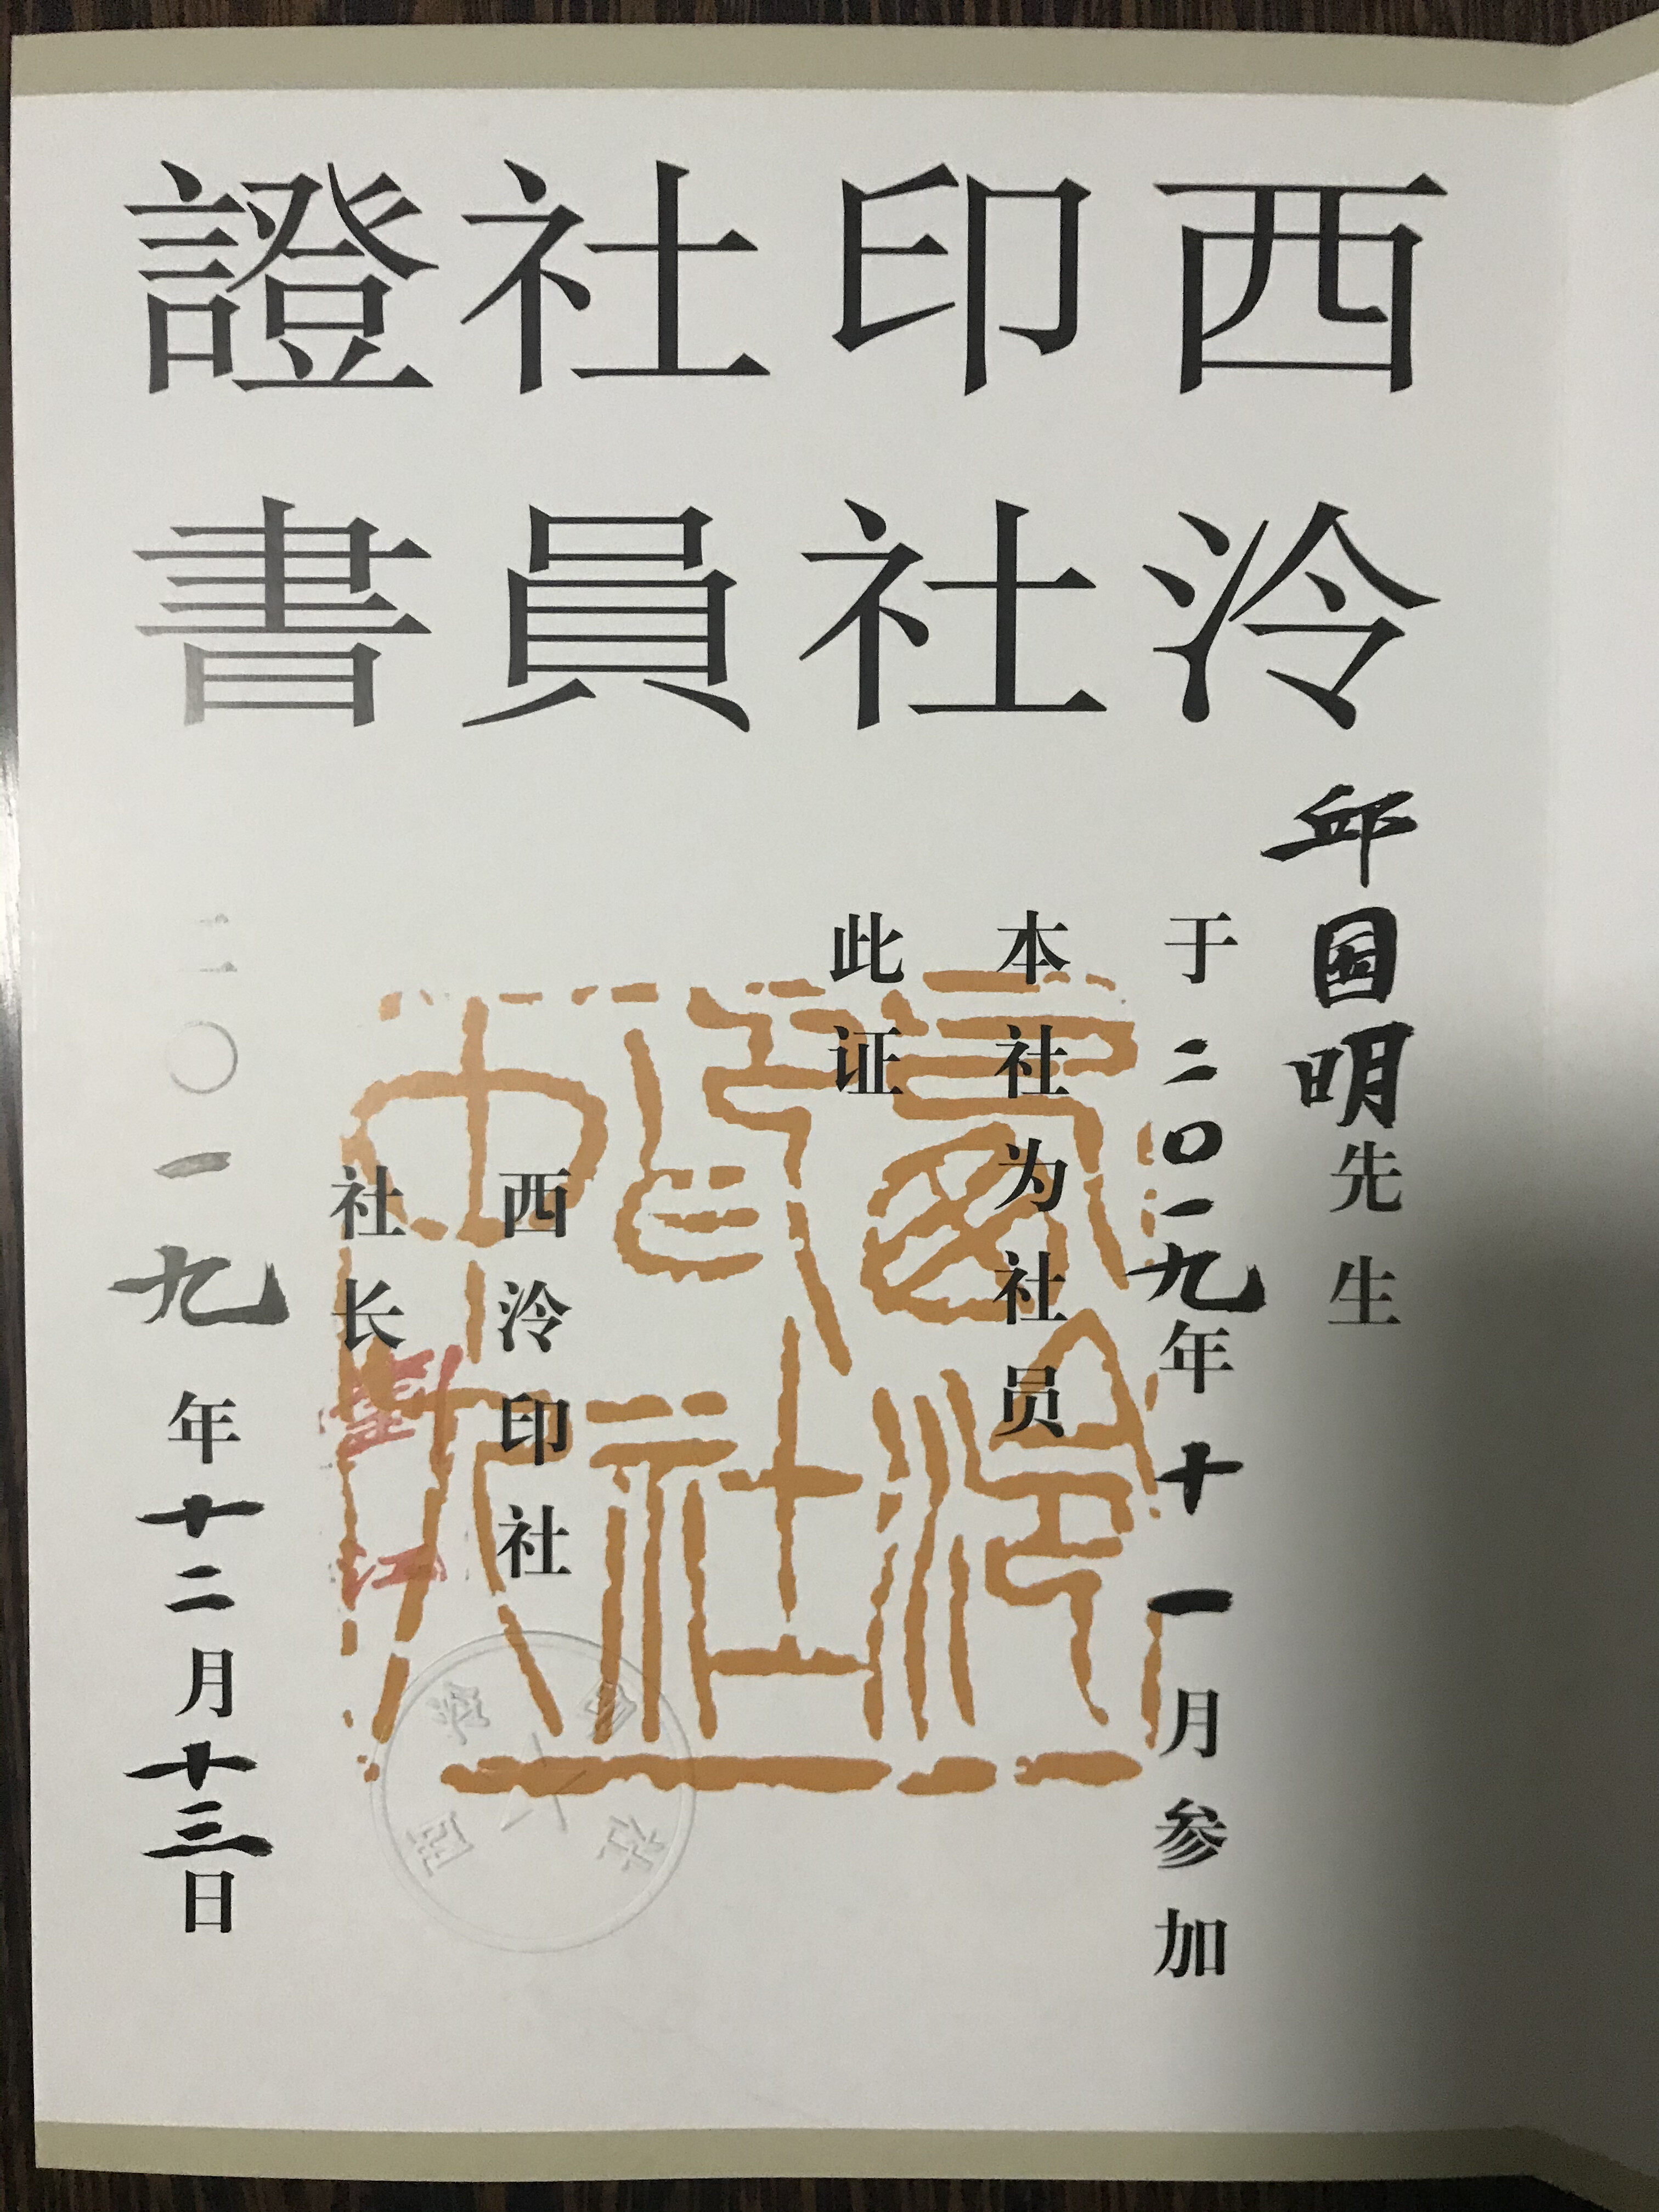 西泠
印社
社員
證書
邱国明先生
于二〇一九年十一月参加
本社为社员
此证
西泠印社
社长
劉江
二〇一九年十二月十三日
西泠印社中人
西泠印社